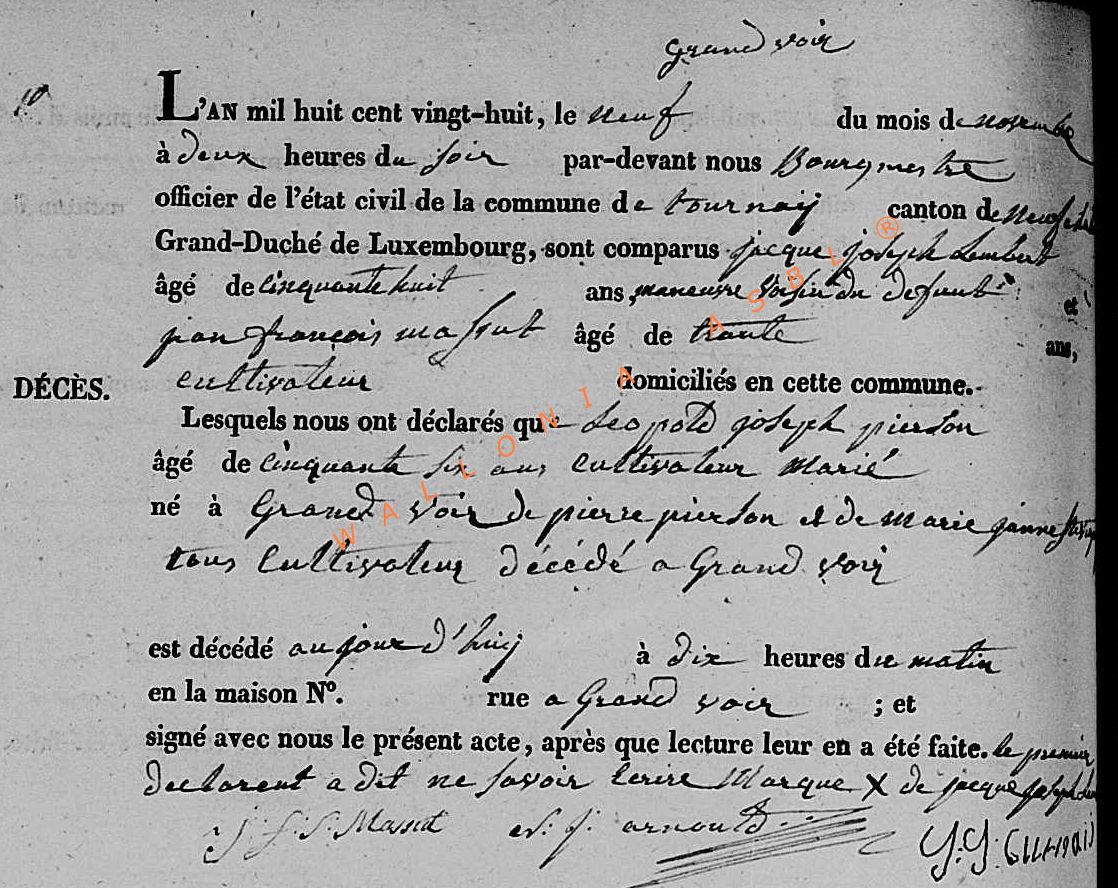 Grand voir
10
L'AN mil huit cent vingt-huit, le neuf du mois de novembre
à deux heures du soir par-devant nous Bourgmestre
officier de l'état civil de la commune de tournay canton de
Grand-Duché de Luxembourg, sont comparus jacque joseph Lambert
âgé de cinquante huit ans, maneuvre voisin du defunt et
jean françois massut âgé de trante ans,
DÉCÈS.
cultivateur domiciliés en cette commune.
Lesquels nous ont déclarés que Leopold joseph pierson
âgé de cinquante six ans cultivateur Marié
né à Grand voir de pierre pierson et de Marie jeanne
tous Cultivateur décédé a Grand voir
est décédé aujourd'huy à dix heures du matin
en la maison N°. rue a Grand voir ; et
signé avec nous le présent acte, après que lecture leur en a été faite. le premier
declarent a dit ne savoir Ecrire Marque X de jacque joseph
J. f. S. Massut arnould
WALLONIA ASBL ®